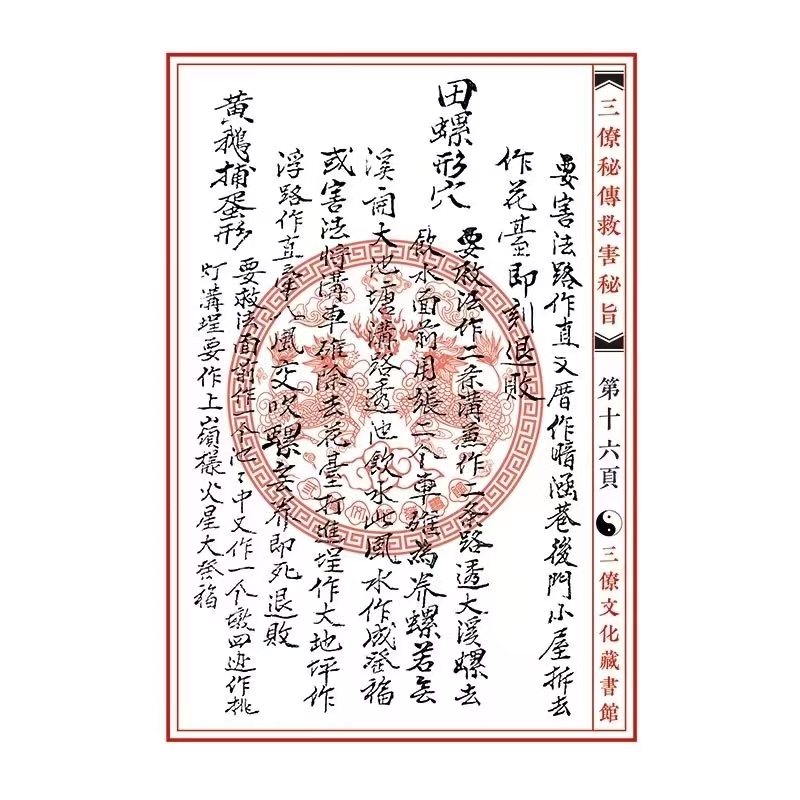 三僚秘傳救害秘旨
第十六頁
三僚文化藏書館
要害法路作直又厝作暗涵巷後門小屋拆去
作花臺即刻退敗
田螺形穴
要救法作二条溝魚作二条路透大溪螺去
飲水面前用張二个車碓為养螺若無
溪開大池塘溝路透池飲水此風水作成發福
或害法将溝車碓除去花臺打進埕作大地坪作
浮路作直 風交吹螺無养即死退敗
黄鵝捕蛋形
要救法面前作一个池々中又作一个墩四边作挑
灯溝埕要作上嶺樣火星大發福